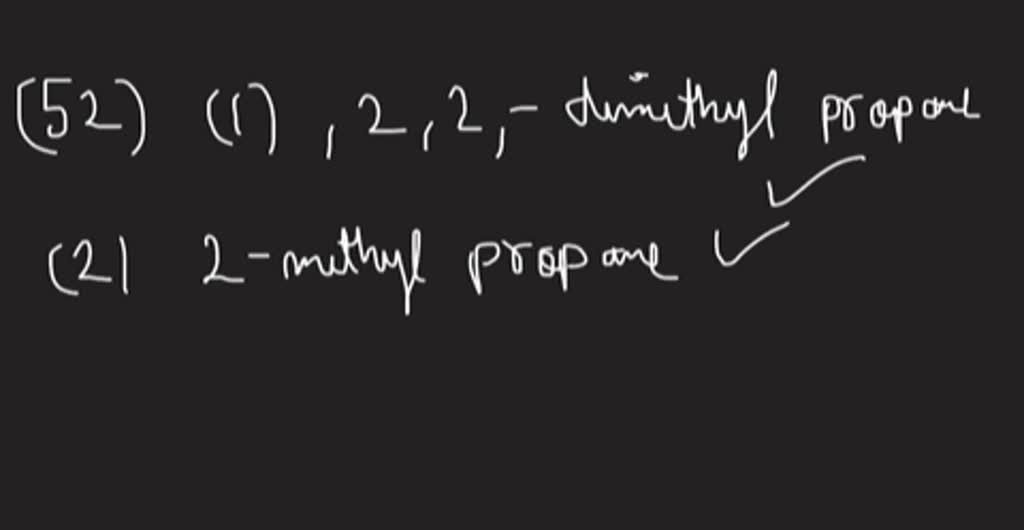 (52) (1) , 2, 2, - dimethyl propane
(2) 2-methyl propane